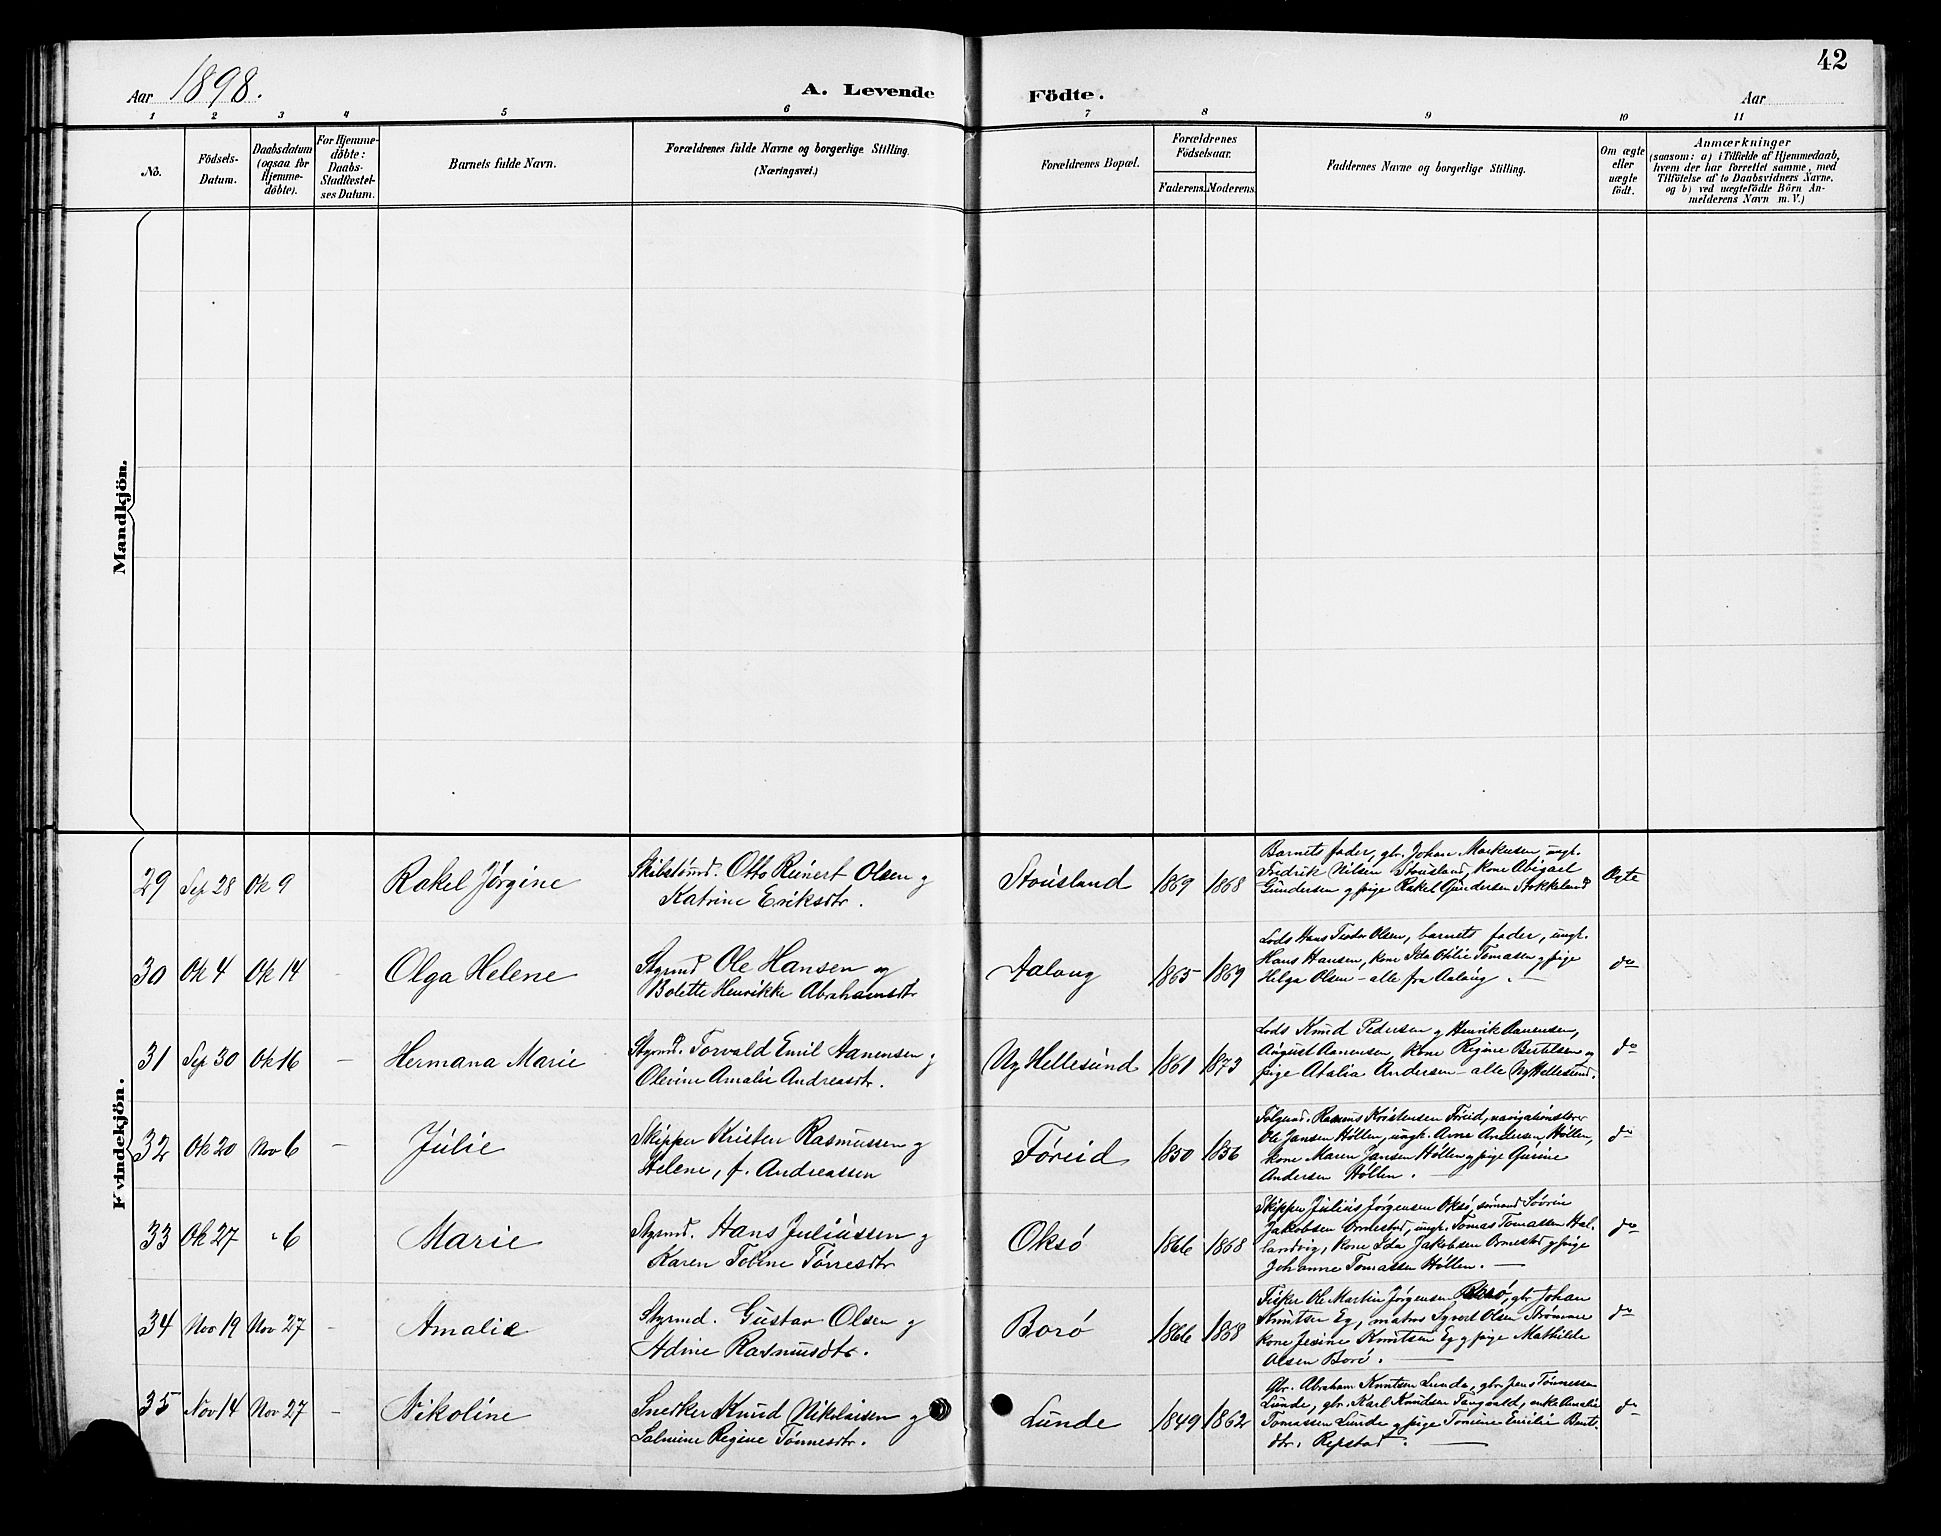 42
Aar 1898.
A. Levende
Födte.
Aar
1 2 3 4 5 6 7 8 9 10 11
No.
Födsels-
Datum.
Daabsdatum
(ogsaa for
Hjemme-
döbte).
For Hjemme-
döbte:
Daabs-
Stadfæstel-
ses Datum.
Barnets fulde Navn.
Forældrenes fulde Navne og borgerlige Stilling.
(Næringsvei.)
Forældrenes Bopæl.
Forældrenes
Födselsaar.
Faderens. Moderens.
Faddernes Navne og borgerlige Stilling.
Om ægte
eller
uægte
födt.
Anmærkninger
(saasom: a) i Tilfælde af Hjemmedaab,
hvem der har forrettet samme, med
Tilföielse af to Daabsvidners Navne.
og b) ved uægtefödte Börn An-
melderens Navn m. V.)
Mandkjön.
Kvindekjön.
29 Sep 28 Ok 9
Rakel Jørgine
Skibstømd. Otto Reinert Olsen og
Katrine Eriksdtr.
Stousland
1869 1868
Barnets fader, gbr. Johan Markusen, ungk.
Fredrik Nilsen Stousland, kone Abigael
Gundersen og pige Rakel Gundersen Stokkeland
Ægte
30 Ok 4 Ok 14 -
Olga Helene
Styrmd Ole Hansen og
Bolette Henrikke Abrahamsdtr
Aaloug
1865 1869
Lods Hans Teodor Olsen, barnets fader, ungk.
Hans Hansen, kone Ida Otilie Tomasen og pige
Helga Olsen - alle fra Aaloug. -
do
31 Sep 30 Ok 16 -
Hermana Marie
Styrmd. Torvald Emil Aanensen og
Olevine Amalie Andreasdtr.
Ny Hellesund
1861 1873
Lods Knud Pedersen og Henrik Aanensen,
August Aanensen, kone Regine Bertelsen og
pige Atalia Andersen - alle Ny Hellesund.
do
32 Ok 20 Nov 6 -
Julie
Skipper Kristen Rasmussen og
Helene, f. Andreassen
Føreid
1850 1856
Følgmd. Rasmus Kristensen Føreid, navigationslærer
Ole Jansen Høllen, ungk. Arne Andersen Høllen,
kone Maren Jansen Høllen og pige Gurine
Andersen Høllen. -
do
33 Ok 27 " 6
Marie
Styrmd. Hans Juliussen og
Karen Tobine Tørresdtr
Oksø
1866 1868
Skipper Julius Jørgensen Oksø, sømand Søvrin
Jakobsen Ormestad, ungk. Tomas Tomassen Hal-
landvig, kone Ida Jakobsen Ormestad og pige
Johanne Tomassen Høllen. -
do
34 Nov 19 Nov 27 -
Amalie
Styrmd. Gustav Olsen og
Adine Rasmusdtr.
Borø
1866 1868
Fisker Ole Martin Jørgensen Borø, gbr. Johan
Knutsen Eg, matros Syvert Olsen Strømme
kone Jesine Knutsen Eg og pige Mathilde
Olsen Borø. -
do
35 Nov 14 Nov 27 -
Nikoline
Snedker Knud Nikolaisen og
Salmine Regine Tønnesdtr.
Lunde
1849 1862
Gbr. Abraham Knutsen Lunde, gbr. Jens Tønnessen
Lunde, gbr. Karl Knudsen Tangvald, enke Amalie
Tomassen Lunde og pige Tomine Emilie Bent-
dtr. Repstad. -
do